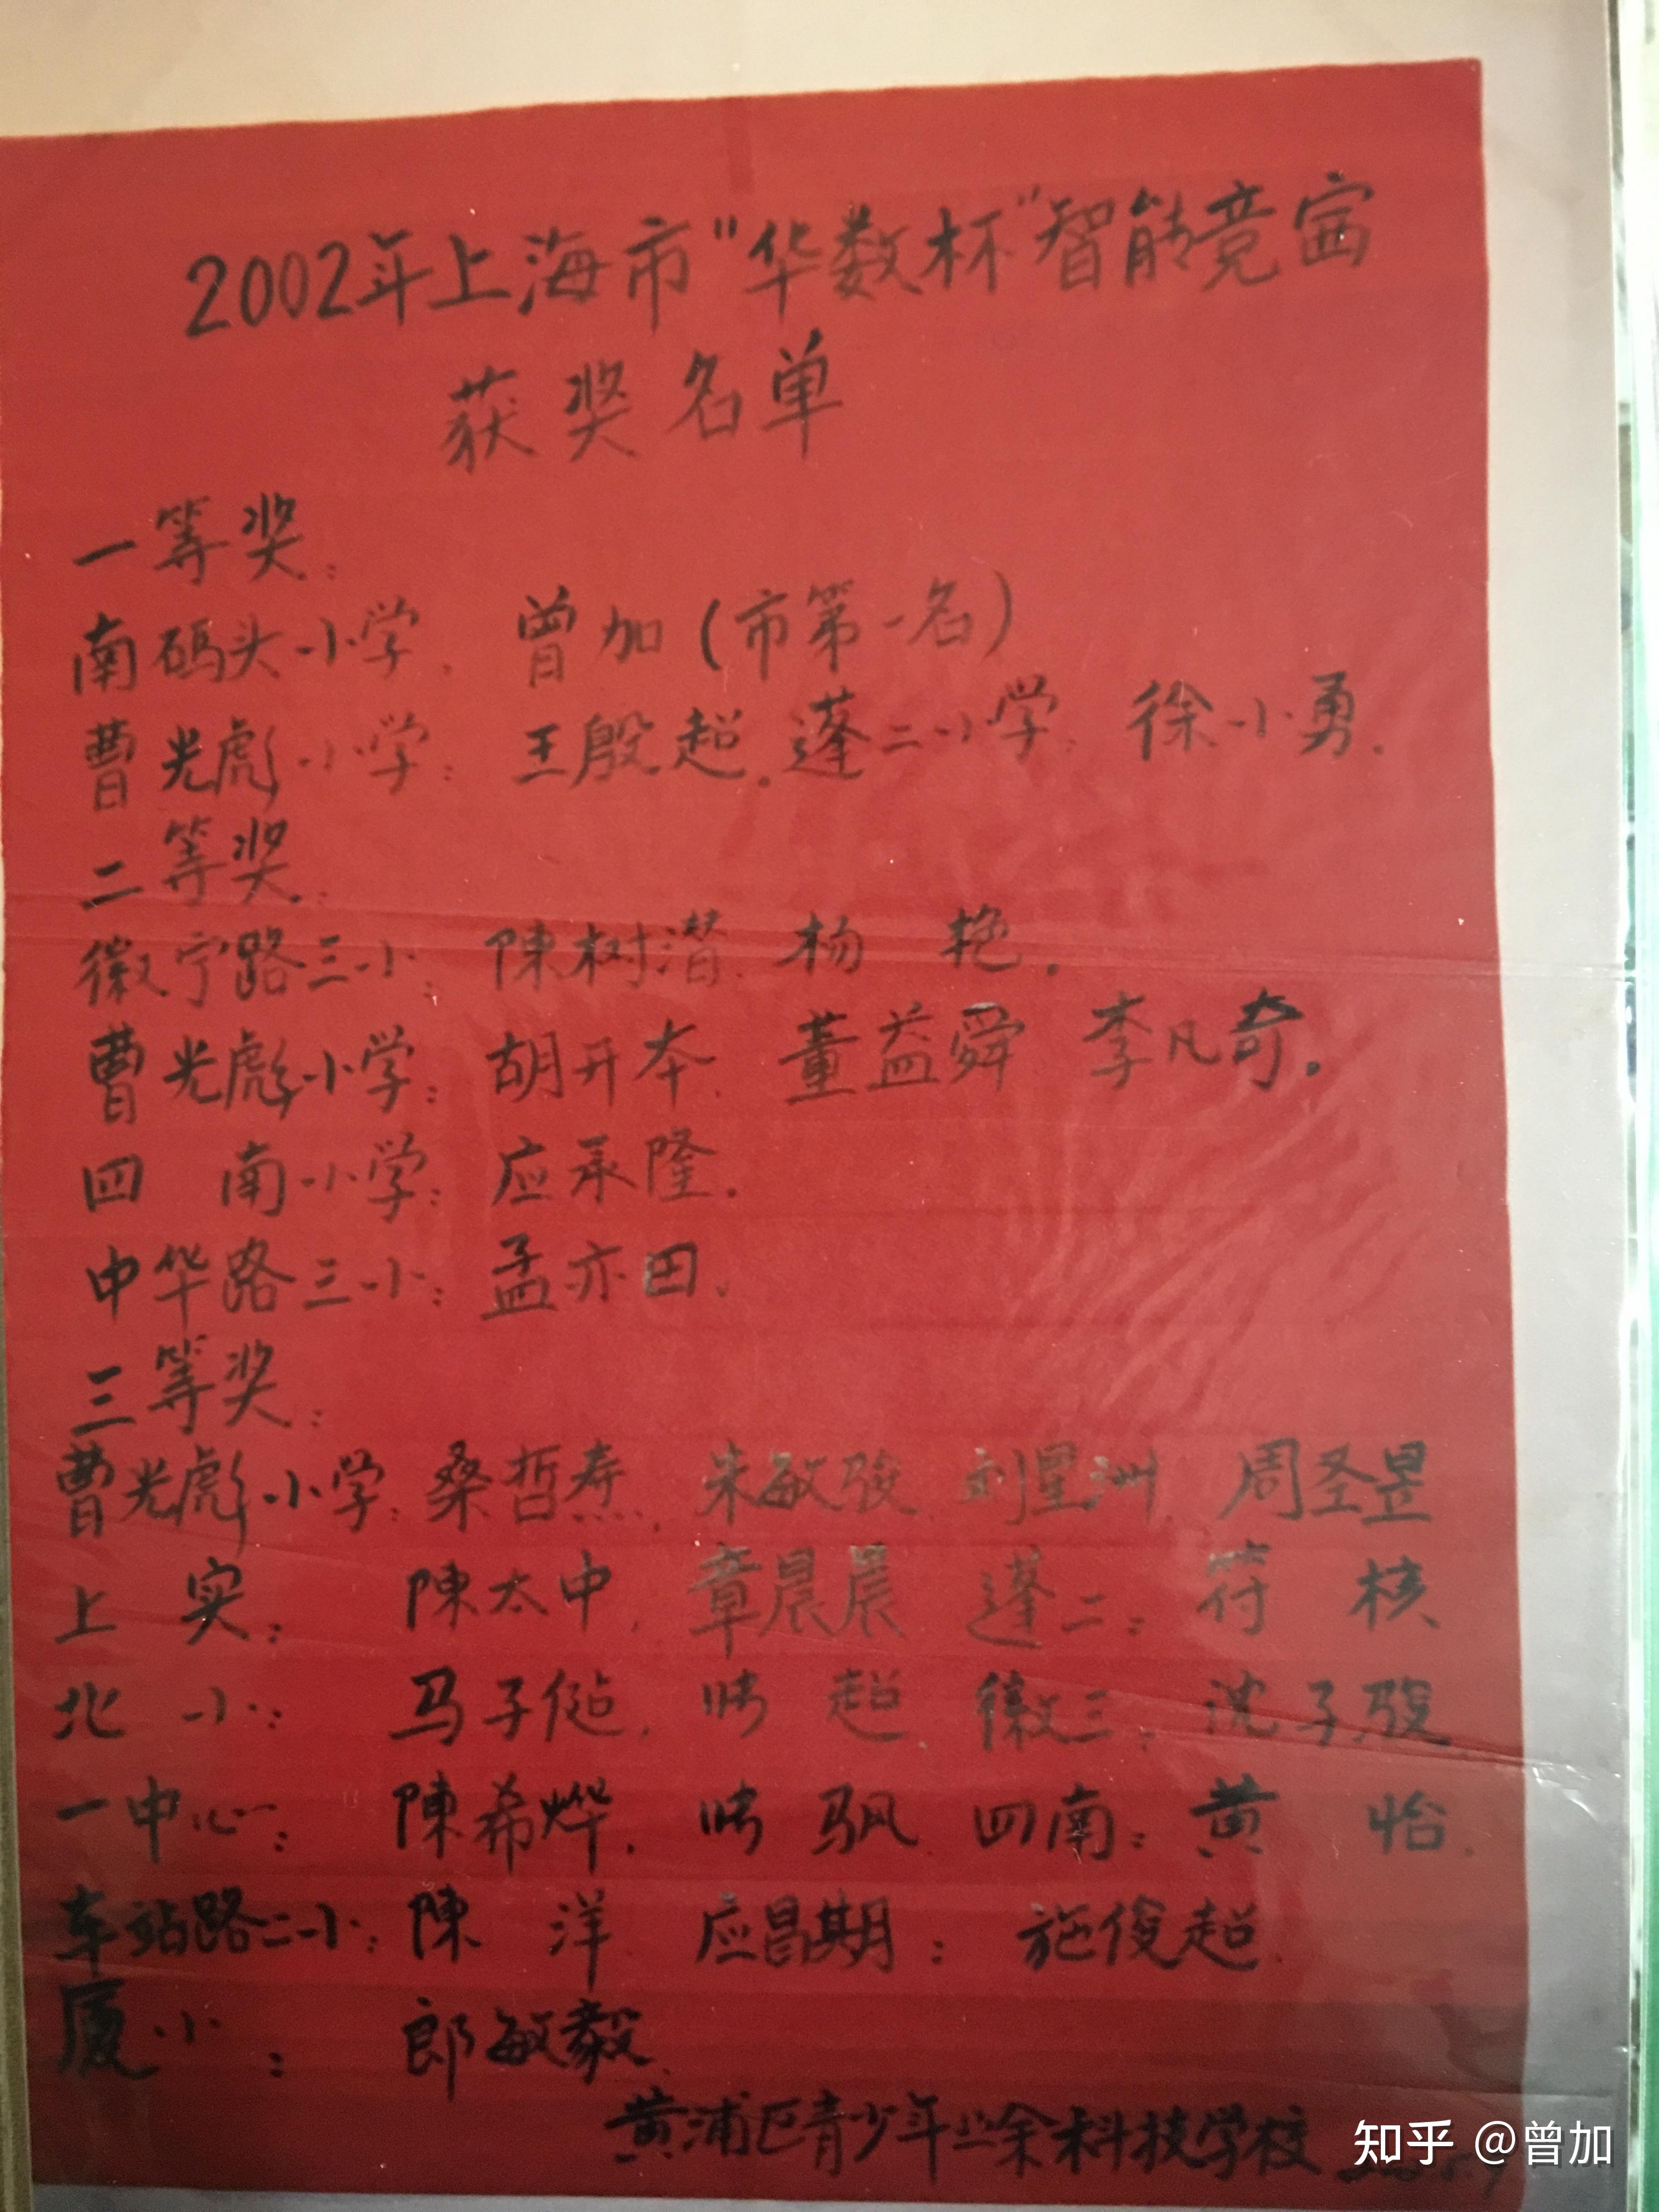 2002年上海市"华数杯"智能竞赛
获奖名单
一等奖:
南码头小学. 曾加(市第一名)
曹光彪小学: 王殷超. 蓬二小学: 徐小勇.
二等奖:
徽宁路三小: 陳树潜. 杨艳.
曹光彪小学: 胡开本. 董益舜 李凡奇.
四南小学: 应承隆.
中华路三小: 孟亦田.
三等奖:
曹光彪小学: 桑哲焘. 朱敏 刘星洲. 周圣昱
上实: 陳太中. 章晨晨 蓬二: 符核
北小: 马子 超. 徽三: 沈子
一中心: 陳希烨. 四南: 黄怡.
车站路二小: 陳洋 应昌期: 施俊超.
厦小: 郎敏毅.
黄浦区青少年业余科技学校
知乎 @曾加